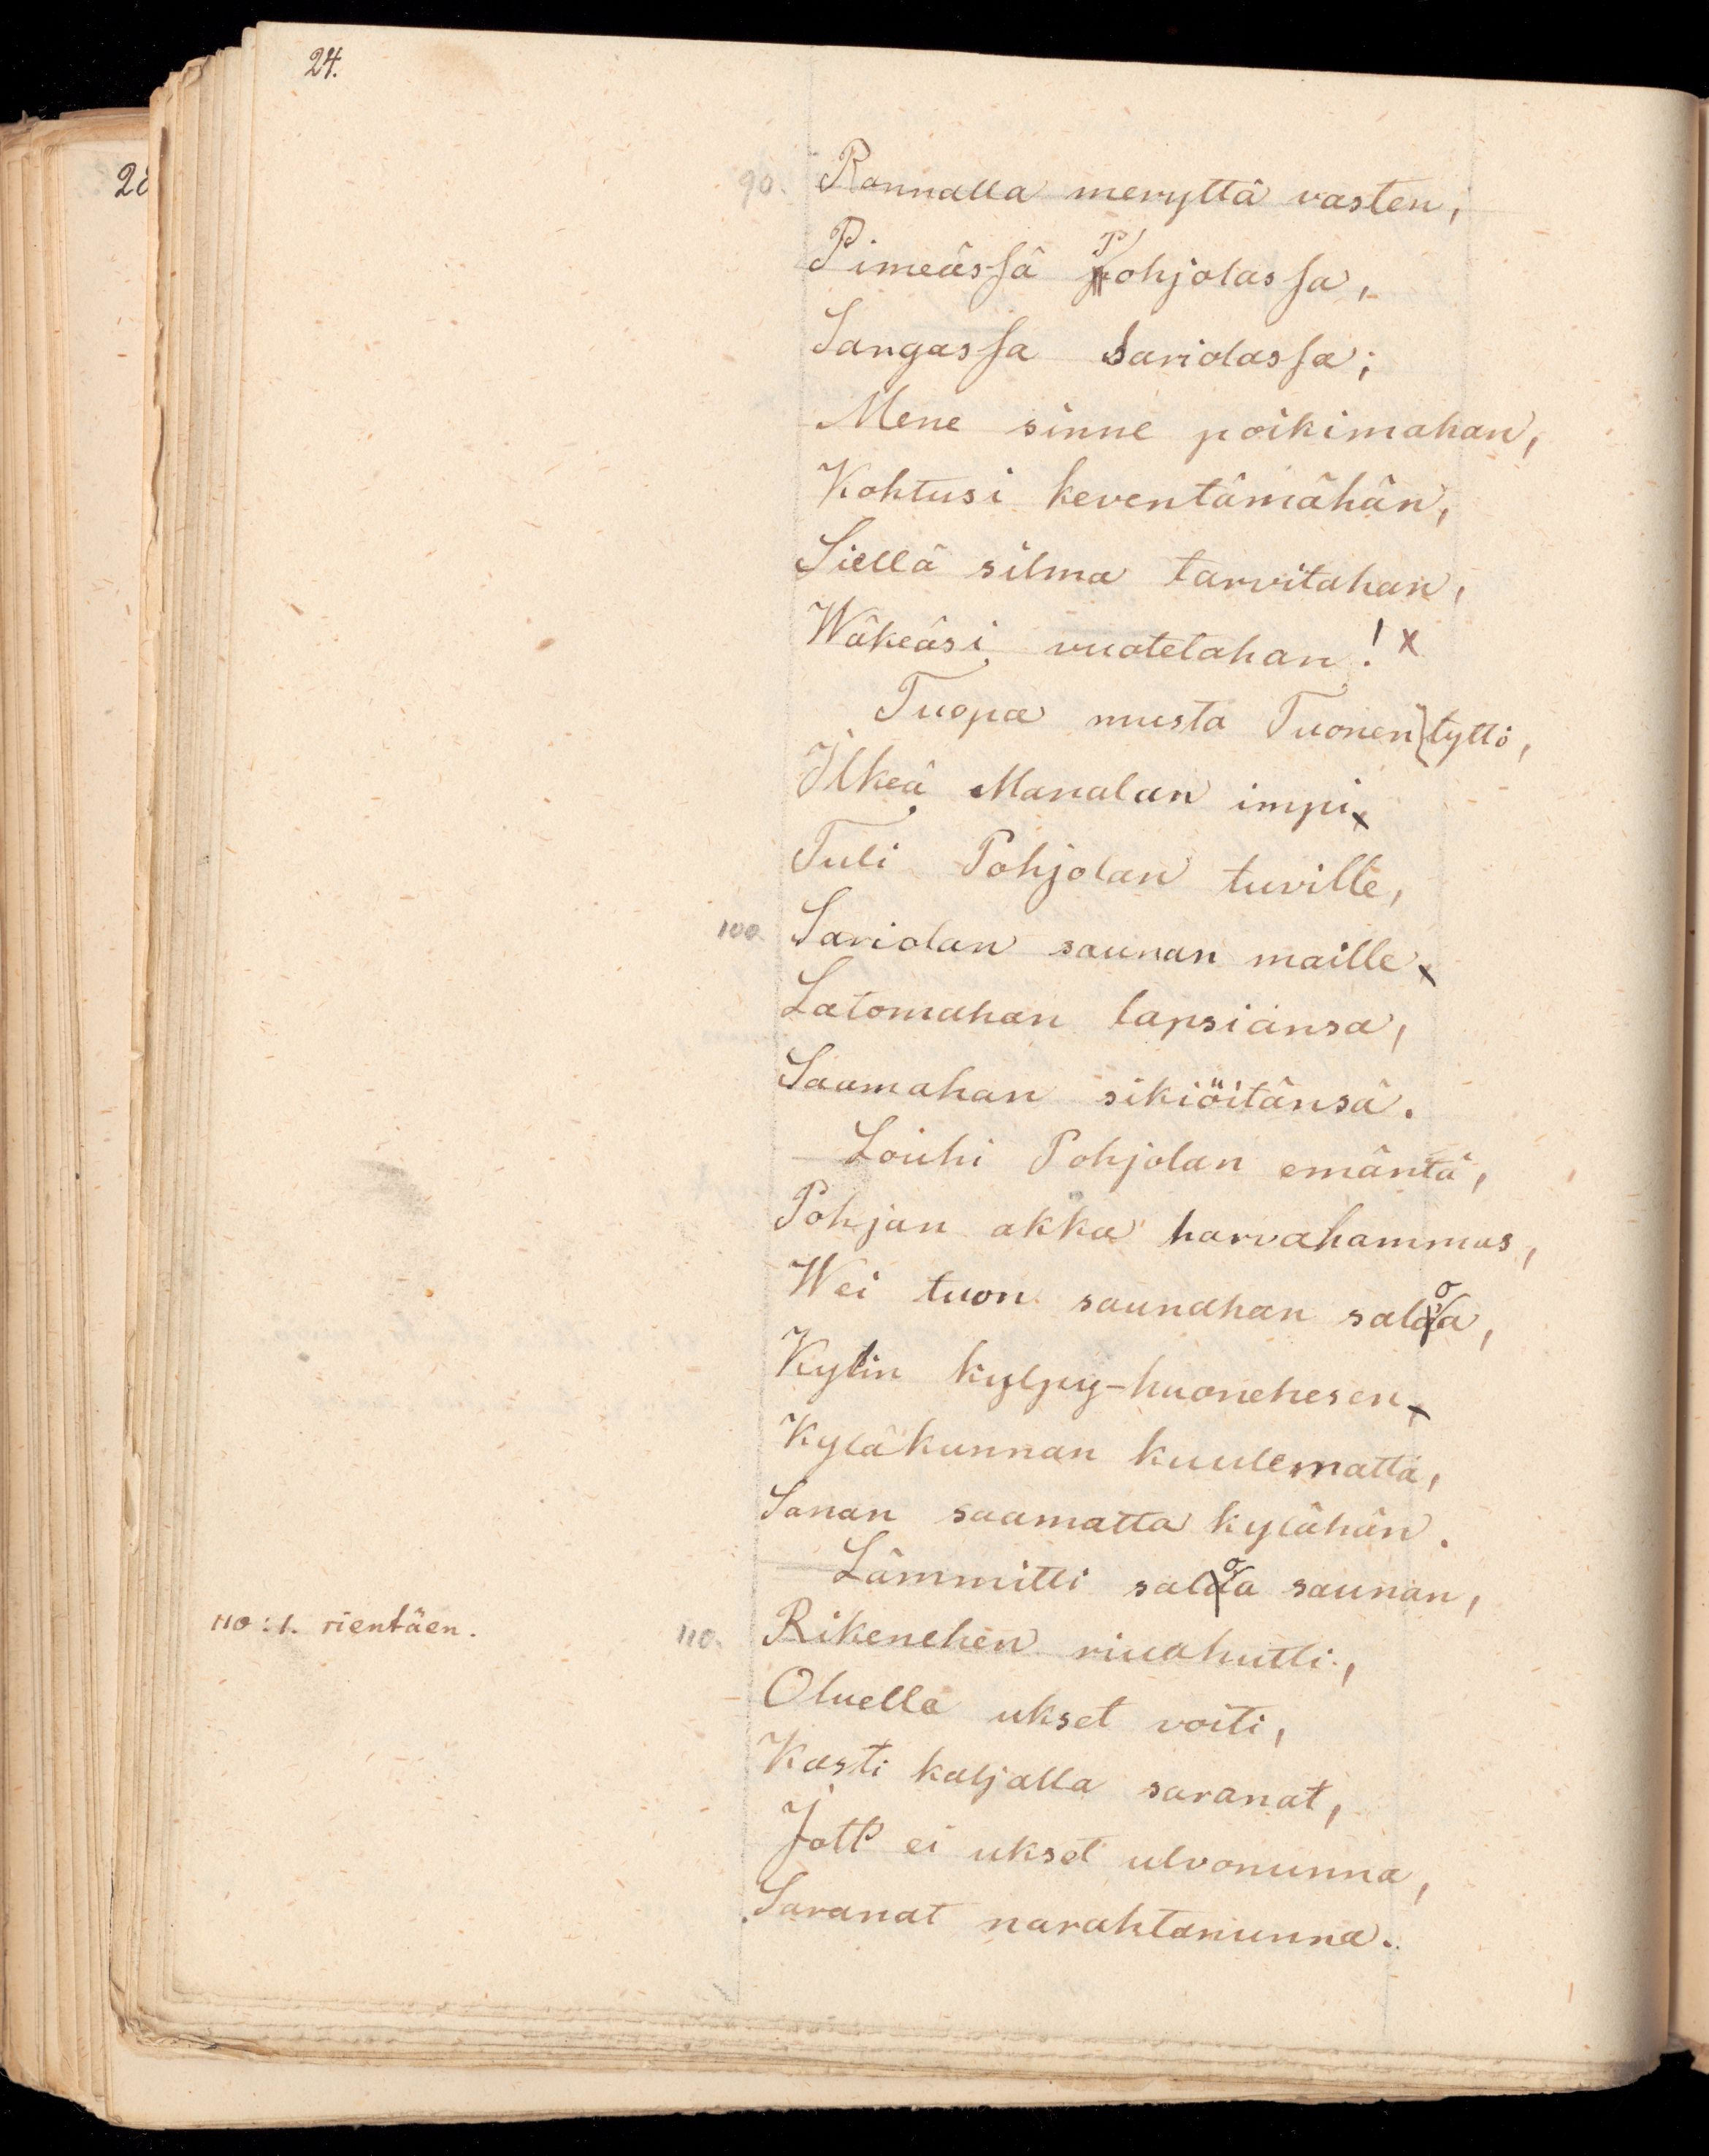 24.
28
90. Rannalla meryttä vasten,
Pimeässä Pohjolassa,
Sangassa Sariolassa;
Mene sinne poikimahan,
Kohtusi keventämähän,
Siellä silma tarvitahan,
Wäkeäsi vuotelahan! x
Tuopa musta Tuonen tyttö,
Ilkeä Manalan impi
Tuli Pohjolan tuville,
100. Sariolan saunan maille
Latomahan lapsiansa,
Saamahan sikiöitänsä.
Louhi Pohjolan emäntä,
Pohjan akka harvahammas,
Wei tuon saunahan saloa,
Kylin kylpy-huonehesen
Kyläkunnan kuulematta,
Sanan saamatta kylähän.
Lämmitti saloa saunan,
110:1. rientäen.
110. Rikenehen riuahutti,
Oluella ukset voiti,
Kasti kaljalla saranat,
Jott' ei ukset ulvonunna,
Saranat narahtanunna.